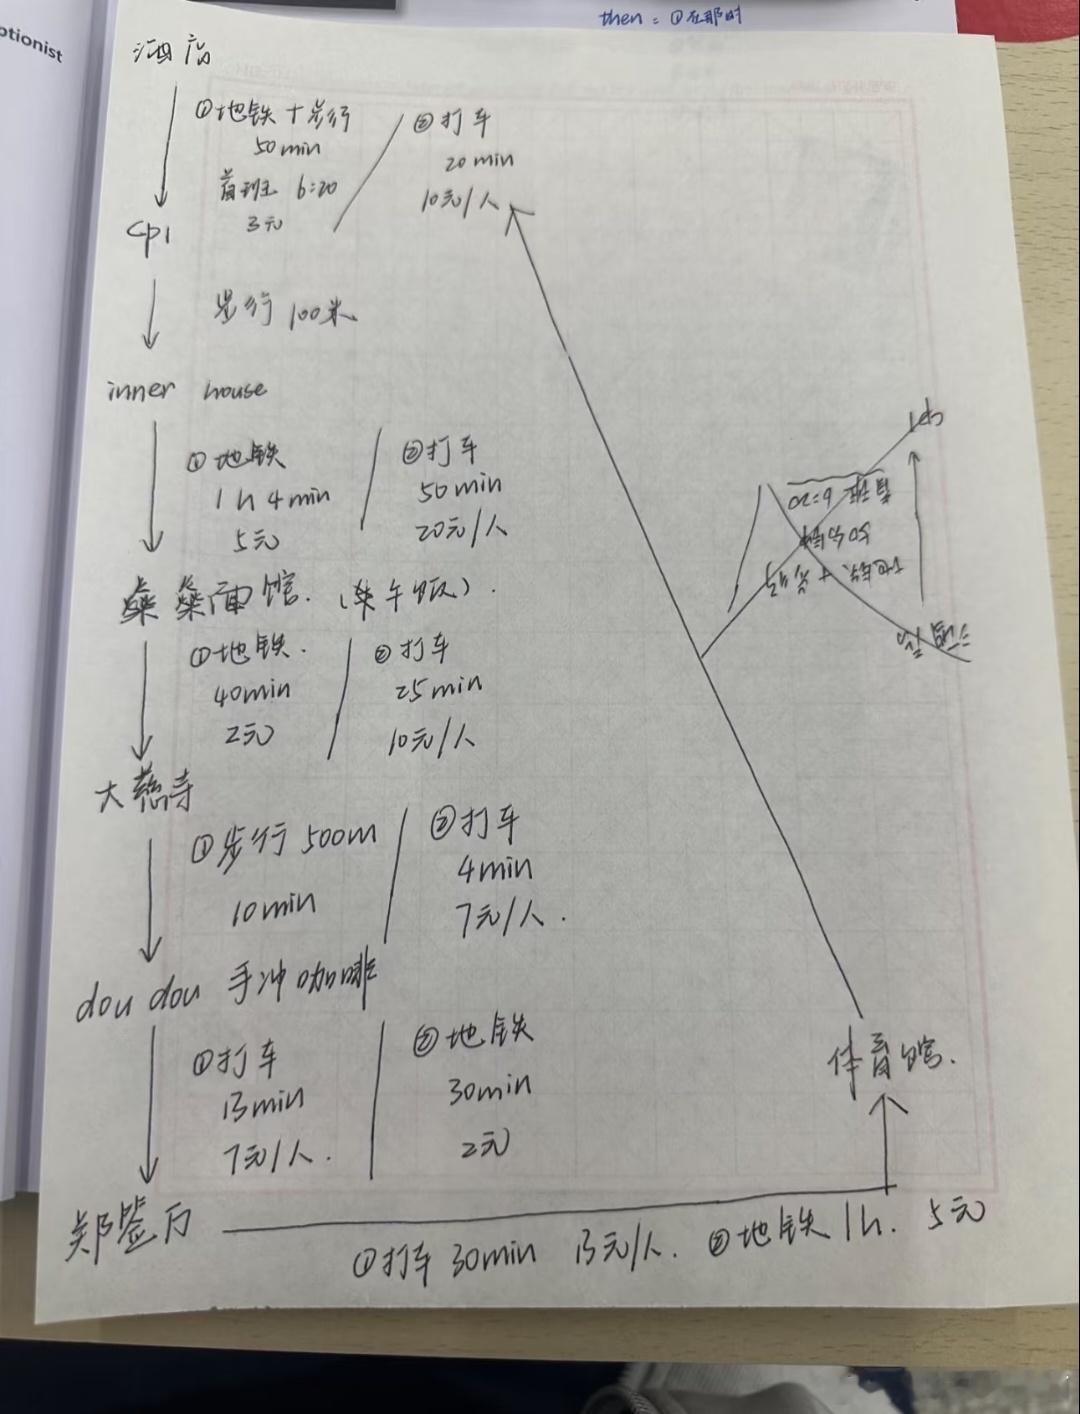 otionist
then = ①在那时
酒店
①地铁十步行
50min
首班 6:20
3元
②打车
20min
10元/人
cp1
步行 100米
inner house
①地铁
1h 4min
5元
②打车
50min
20元/人
燊燊面馆.（某午饭）.
①地铁.
40min
2元
②打车
25min
10元/人
大慈寺
①步行 500m
10min
②打车
4min
7元/人.
dou dou 手冲咖啡
①打车
13min
7元/人.
②地铁
30min
2元
郑签万
①打车 30min 13元/人. ②地铁 1h. 5元
体育馆.
酒店
地铁 + 步行
50分钟
首班 6:20
cp1